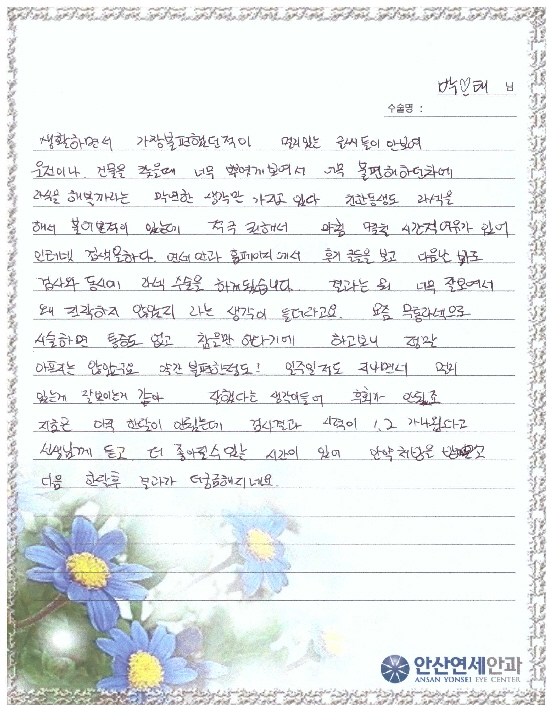 박♡태 님
수술명 :
생활하면서 가장불편했던적이 멀리있는 글씨들이 안보여
운전이나 건물을 찾을때 너무 뿌옇게보여서 너무 불편해하던차에
라식을 해볼까라는 막연한 생각만 가지고 있다 친한동생도 라식을
해서 붙어본적이 있는데 적극 권해서 마침 시간적여유가 있어
인터넷 검색을하다. 연세안과 홈페이지에서 후기글들을 보고 다음날 바로
검사와 동시에 라식 수술을 하게됐습니다. 결과는 와 너무 잘보여서
왜 진작하지 않았지 라는 생각이 들더라고요. 요즘 무통라식으로
시술하면 통증도 없고 참을만 하다기에 하고보니 정말
아프지는 않았구요 약간 불편한정도! 일주일정도 지나면서 멀리
있는게 잘보이는게 같아 잘했다는 생각이들어 후회가 안됐죠
지금은 아직 한달이 안됐는데 검사결과 시력이 1.2 가나왔다고
선생님께 듣고 더 좋아질수있는 시간이 있어 안약처방을 받고
다음 한달후 결과가 더궁금해지네요.
안산연세안과
ANSAN YONSEI EYE CENTER